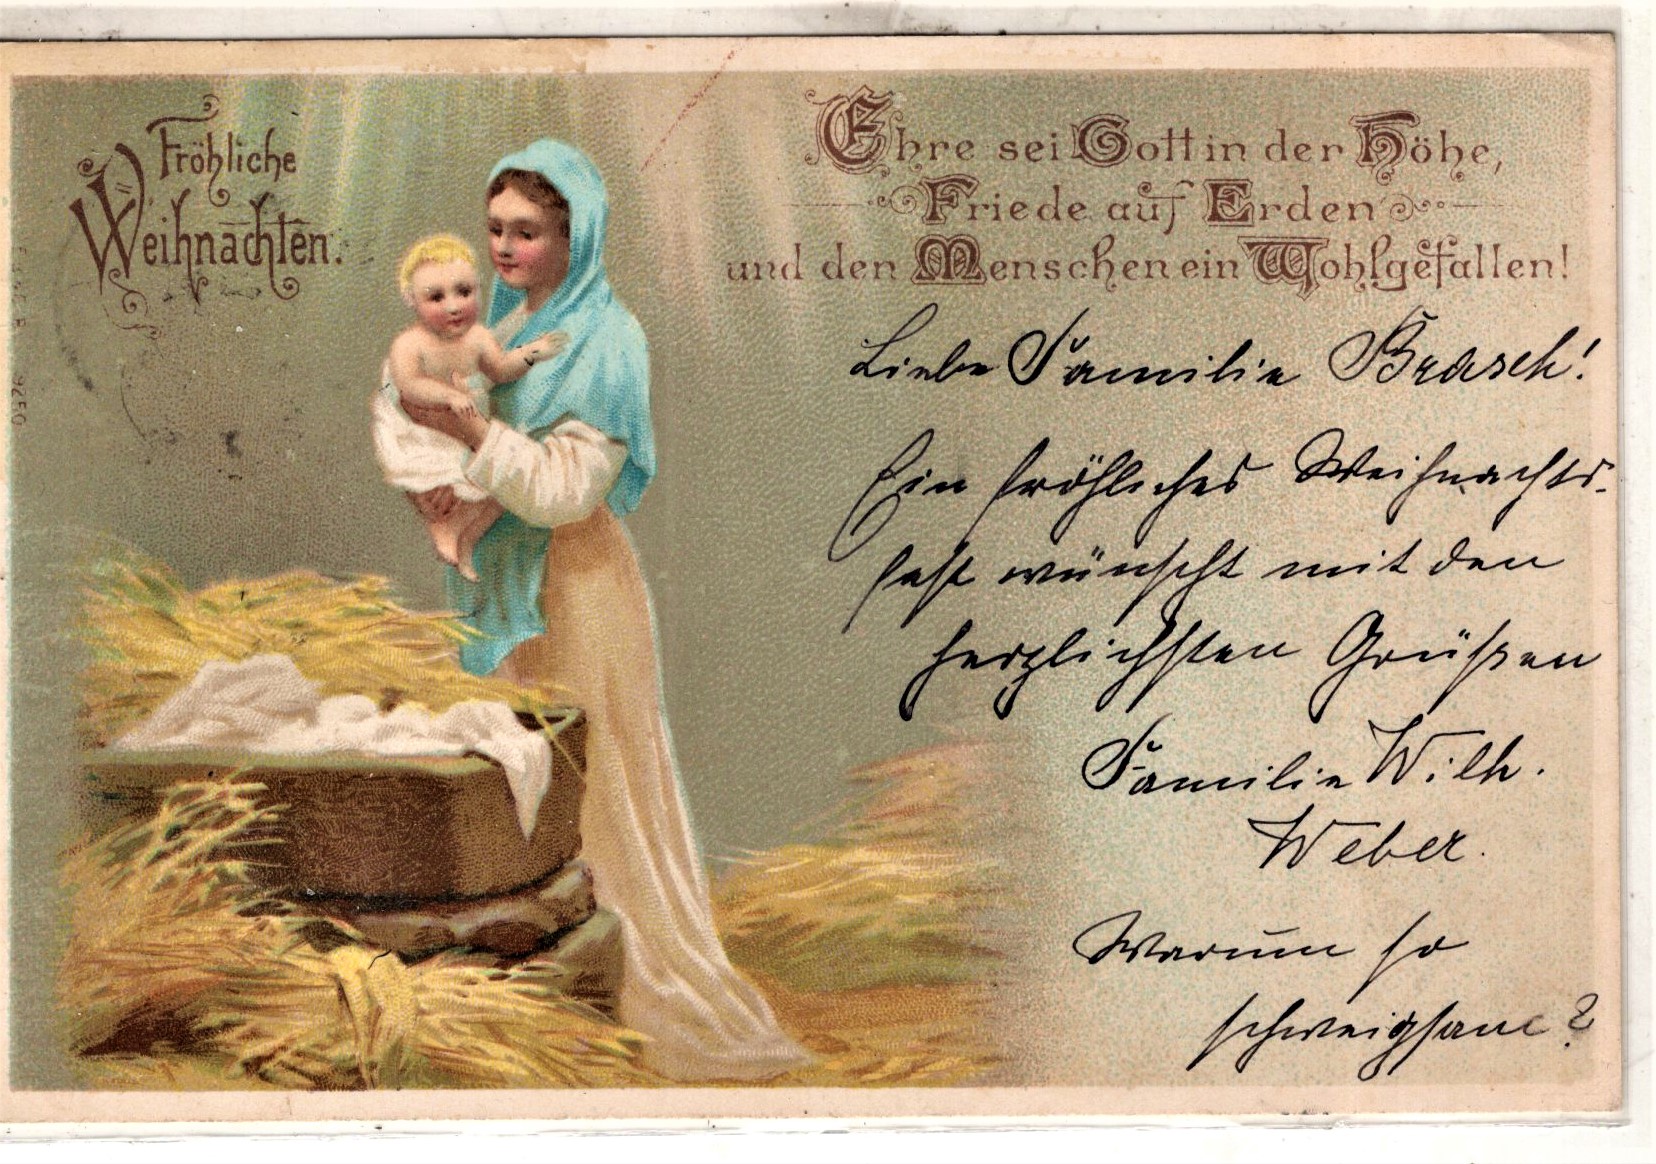 Fröhliche
Weihnachten.
Ehre sei Gott in der Höhe,
Friede auf Erden
und den Menschen ein Wohlgefallen!
Liebe Familie Brasch!
Ein fröhliches Weihnachts-
fest wünscht mit den
herzlichsten Grüßen
Familie Wilh.
Weber.
Warum so
schweigsam?
9250